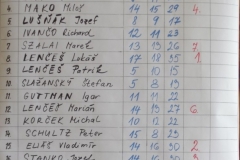 4 MAKO Miloš 14 15 29 4.
5 LUŠŇÁK Jozef 8 9 17
6 IVANČO Richard 12 11 23
7 SZALAI Marek 13 13 26 7.
8 LENČEŠ Lukáš 17 18 35 1.
9 LENČEŠ Patrik 5 10 15
10 SLAŽANSKÝ Štefan 5 8 13
11 GUTTMAN Igor 11 11 22
12 LENČEŠ Marián 14 13 27 6.
13 KORČEK Michal 10 12 22
14 SCHULTZ Peter 15 8 23
15 ELIÁŠ Vladimír 14 16 30 2
16 STANKO Jozef 14 16 30 3